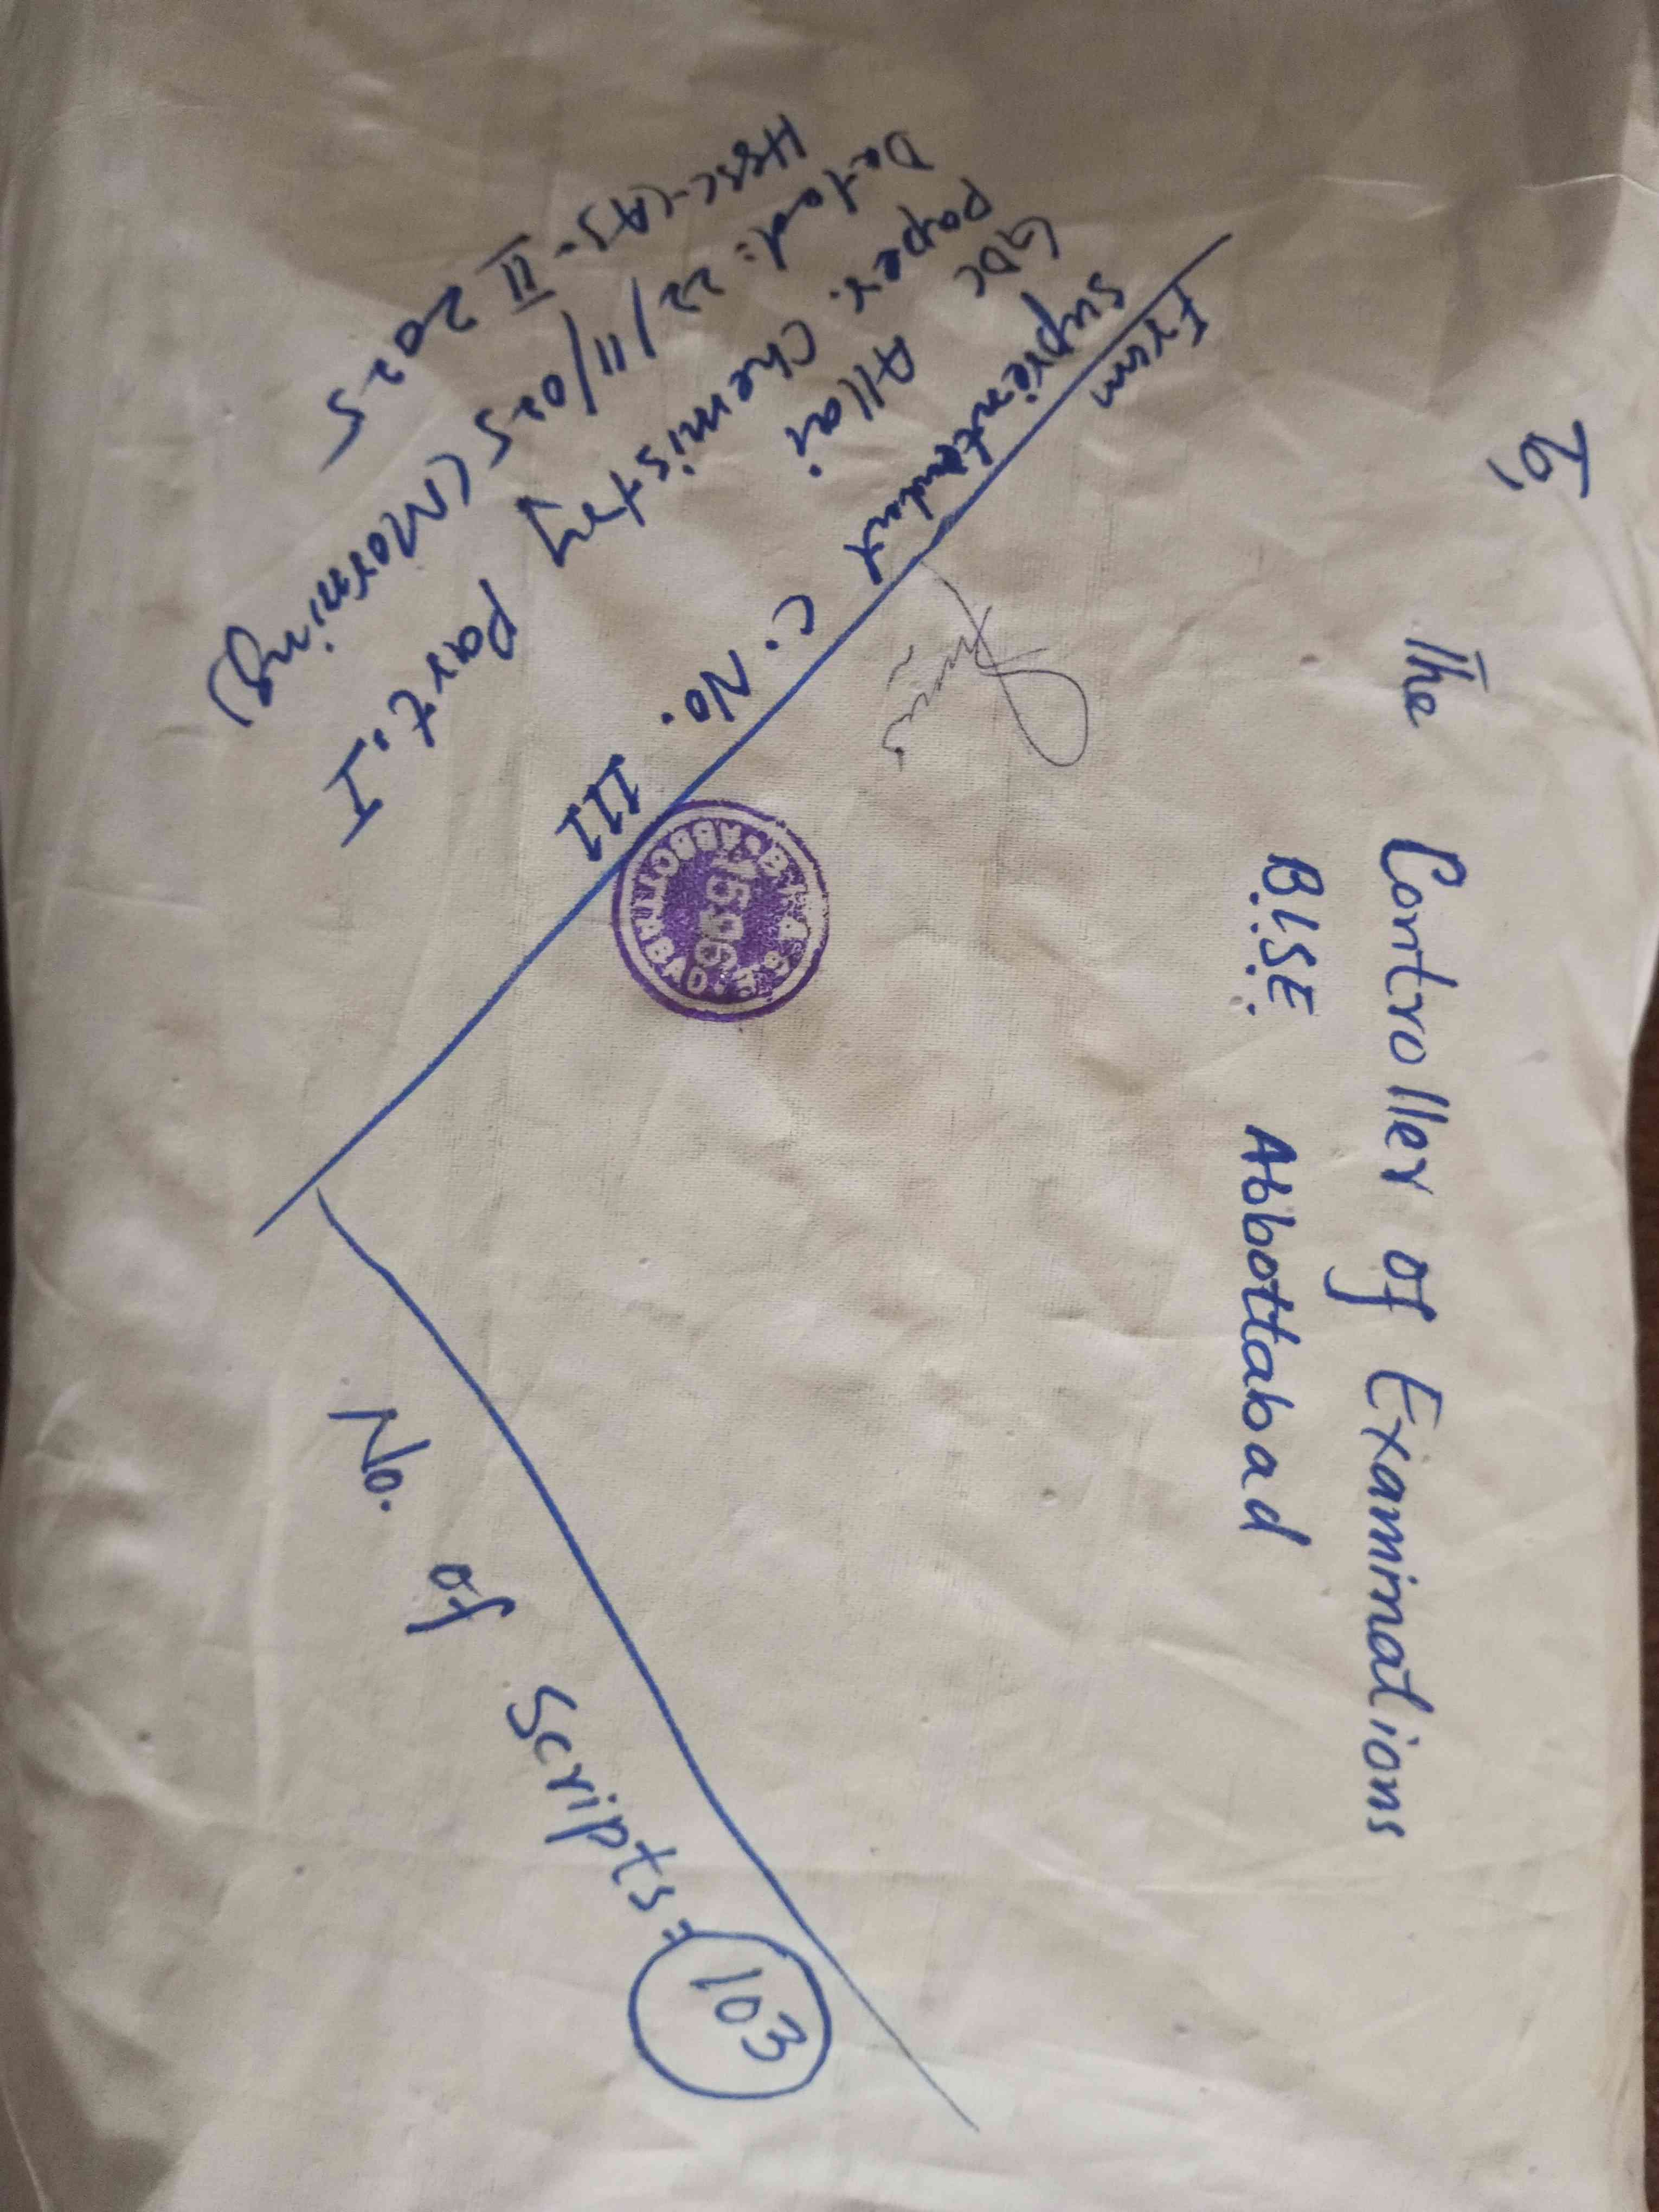 To,
The Controller of Examinations
B.I.S.E. Abbottabad
From
Suprentandent
GDC Allai C. No. 111
Paper: Chemistry Part: I
Dated: 22/11/025 (Morning)
HSSC-(A)-II 2025
B.I.&S.E. ABBOTTABAD
No. of Scripts = 103